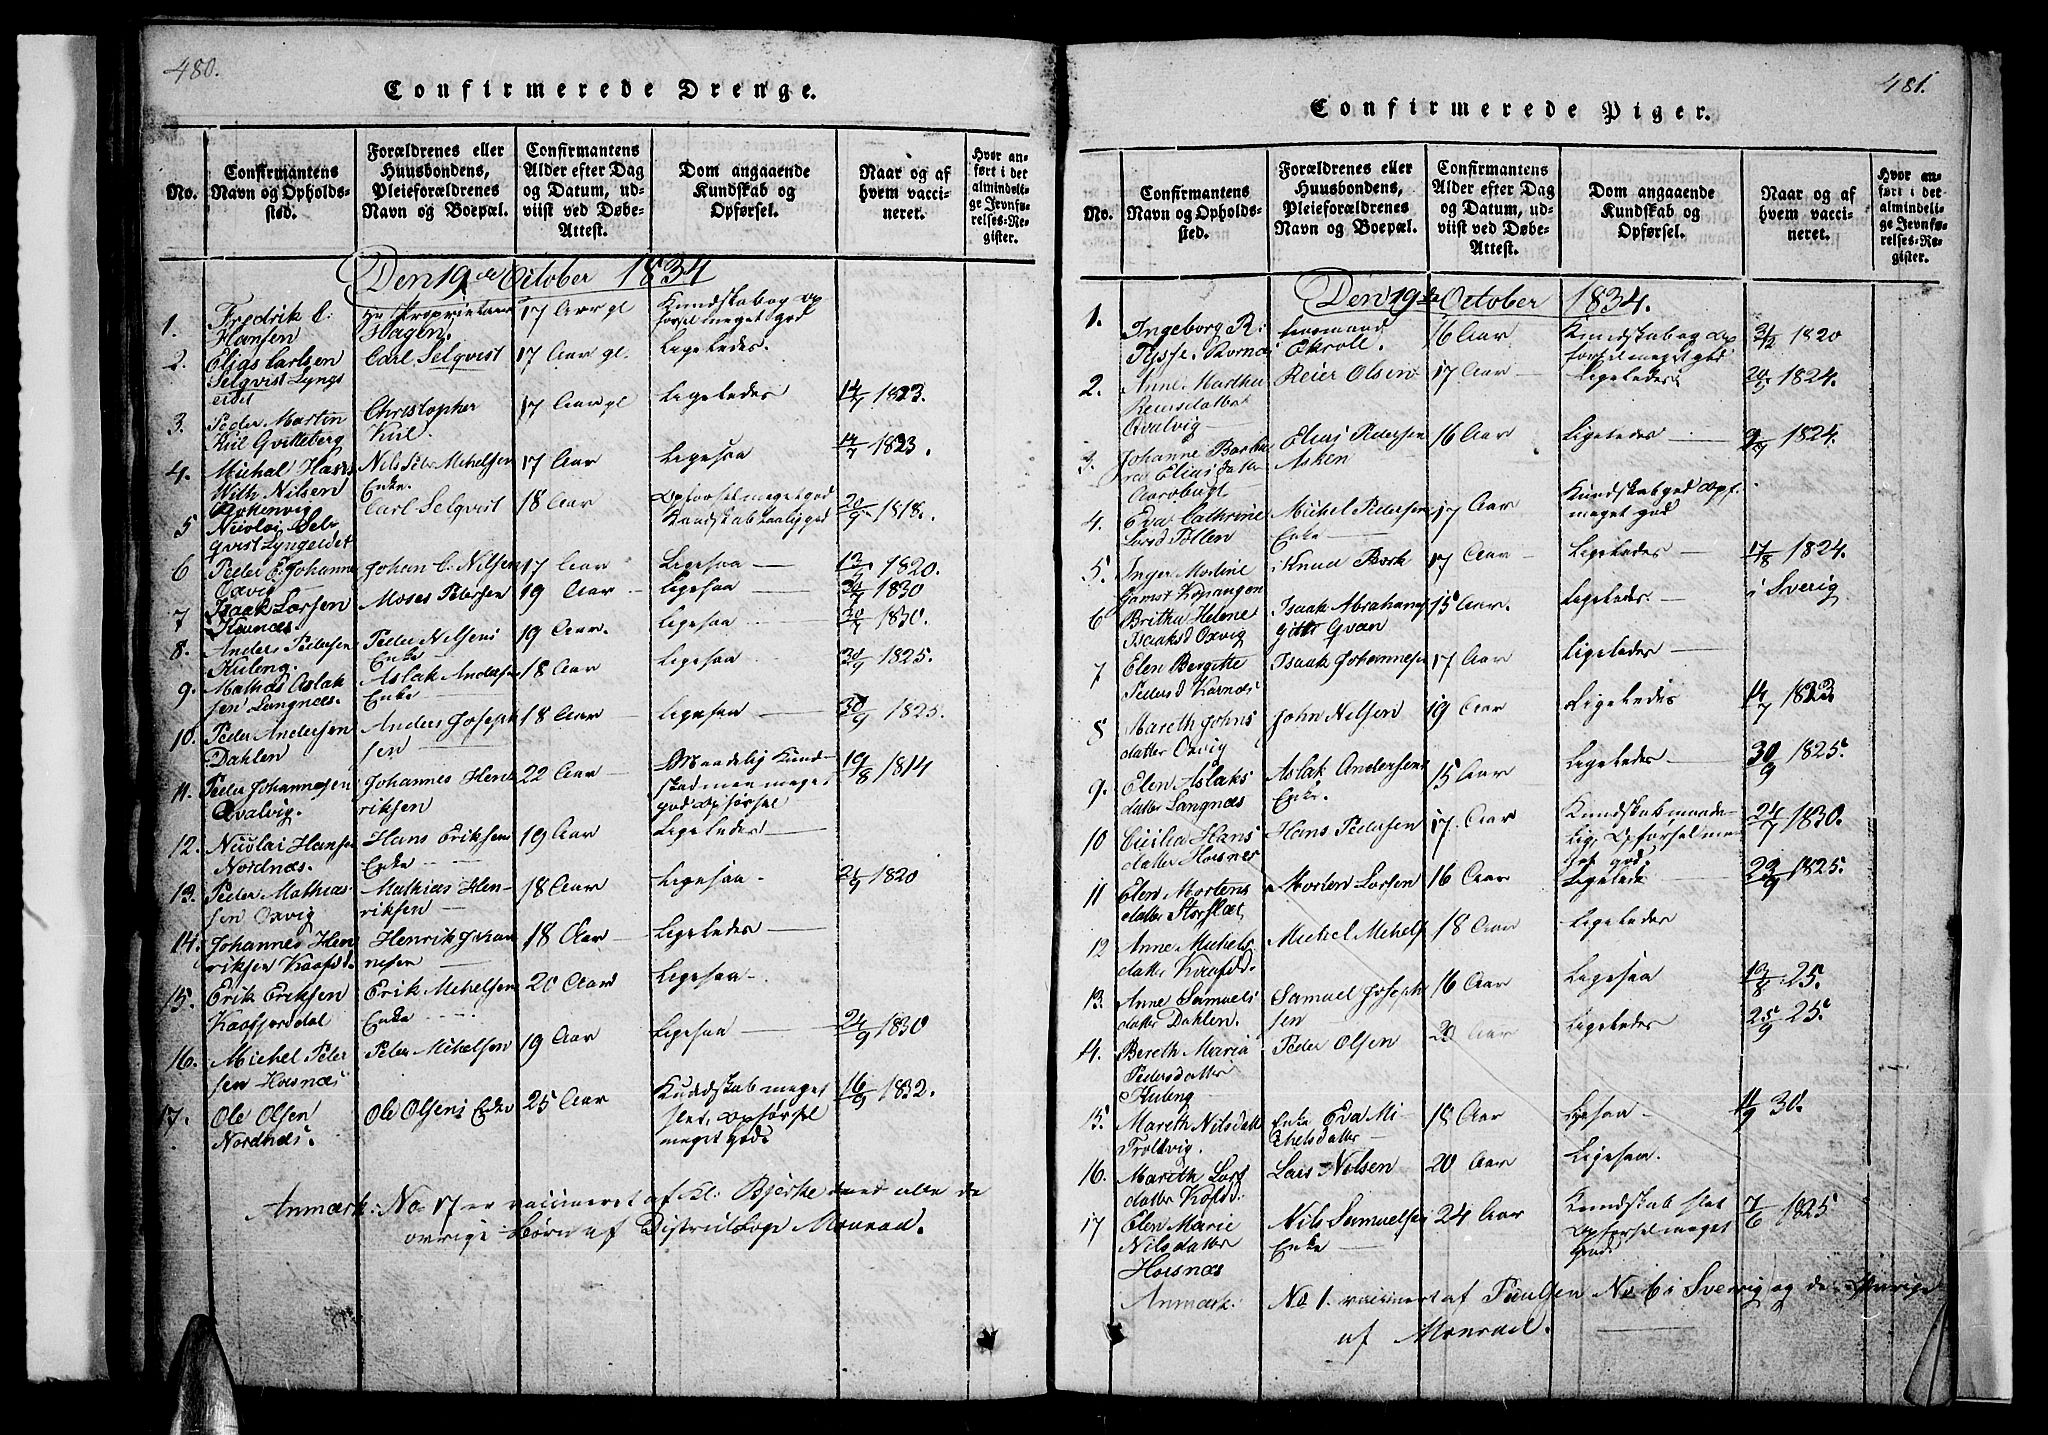 480.
Confirmerede Drenge.
No.
Confirmantens Navn og Opholdssted.
Forældrenes eller Huusbondens, Pleieforældrenes Navn og Boepæl.
Confirmantens Alder efter Dag og Datum, udviist ved Døbe-Attest.
Dom angaaende Kundskab og Opførsel.
Naar og af hvem vaccineret.
Hvor anført i det almindelige Jevnførelses-Register.
Den 19de October 1834
1. Fredrik C: Hansen Hr Proprietaer Hagen. 17 Aar gl Kundskab og Opførsel meget god
2. Elias Carlsen Selqvist Lyngseidet Carl Selqvist 17 Aar gl. Ligeledes.
3. Peder Martin Kiil Gvitteberg Christopher Kiil. 17 Aar gl Ligeledes 14/7 1823.
4. Michal Hans With Nilsen Nils Peter Mehelsen Enke. 17 Aar Ligesaa 14/7 1823.
5 Nicolai Selqvist Lyngeidet Carl Selqvist 18 Aar Opførsel meget god Kundskab taalig god 20/9 1818.
6 Peder C: Johanne Oxvig Johan C: Nilsen 17 Aar Ligesaa 1820.
7 Isaak Larsen Karnæs. Moses Pedersen 19 Aar Ligesaa 1830
8. Anders Pedersen Kuleng. Peder Nilsens Enke 19 Aar. Ligesaa 1830.
9. Mathias Aslaksen Langnæs. Aslak Andersen Enke 18 Aar Ligesaa 30/9 1825.
10. Peder Andersen Dahlen Anders Josephsen 18 Aar Ligesaa 30/9 1825.
11. Peder Johannesen Qvalvig. Johannes Henriksen 22 Aar Maadelig Kundskab men meget god Opførsel 19/8 1814
12. Nicolai Hansen Nordnæs. Hans Eriksens Enke 19 Aar Ligeledes
13. Peder Mathiassen Oxvig Mathias Henriksen 18 Aar Ligesaa. 21/9 1820
14. Johannes Henriksen Kaafd. Henrik Johannesen 18 Aar Ligeledes
15. Erik Eriksen Kaafjorddal Erik Mehelsen Enke 20 Aar Ligesaa
16. Michel Pedersen Horsnæs Peder Mikelsen 19 Aar Ligesaa 24/9 1830
17. Ole Olsen Nordnæs. Ole Olsens Enke 25 Aar Kundskab meget slet, Opførsel meget god 16/9 1832.
Anmærk: No 17 er vaccineret af Kl: Bjerke med alle de
øvrige Børn af Districtslæge Monrad.
481.
Confirmerede Piger.
No.
Confirmantens Navn og Opholdssted.
Forældrenes eller Huusbondens, Pleieforældrenes Navn og Boepæl.
Confirmantens Alder efter Dag og Datum, udviist ved Døbe-Attest.
Dom angaaende Kundskab og Opførsel.
Naar og af hvem vaccineret.
Hvor anført i det almindelige Jevnførelses-Register.
Den 19de October 1834.
1. Ingeborg R: Tysse. Kornæs Lensmand Ekroll. 16 Aar Kundskab og Opførsel meget god 1820
2. Anne Martha Reiersdatter Qvalvig Reier Olsen 17 Aar Ligeledes 20/5 1824.
3. Johanne Elias Datter Aarøbugt Elias Pedersen Asken 16 Aar Ligeledes 1824.
4. Eva Cathrine Pollen Michel Pedersen Enke 17 Aar Kundskab god Opf. meget god
5. Inger Martine Jæmst Kopangen Knud Bork 17 Aar Ligeledes 17/8 1824.
6 Britha Helene Isaaksd Oxvig Isaak Abrahams Qvæn 15 Aar. Ligeledes. i Sverig
7 Elen Bergitte Pedersd Karnæs Isaak Johannesen 17 Aar Ligeledes
8 Mareth Johnsdatter Oxvig John Nilsen 19 Aar Ligeledes 14/7 1823
9. Elen Aslaksdatter Langnæs Aslak Andersens Enke. 15 Aar Ligeledes 30/9 1825.
10 Cicilia Hansdatter Horsnes Hans Pedersen 17. Aar Kundskab maadelig, Opførsel meget god. 24/7 1830.
11 Elen Mortensdatter Storslæt Morten Larsen 16 Aar Ligelede 29/9 1825.
12 Anne Michelsdatter Kaafd. Michel Mehels 18 Aar Ligeledes
13. Anne Samuelsdatter Dahlen. Samuel Josephsen 16 Aar Ligesaa 19/8 25.
14. Bereth Maria Pedersdatter Kuleng Peder Olsen 20 Aar Ligeledes 25/9 25.
15. Mareth Nilsdatt Trollvig. Enke Eva Michelsdatter 18 Aar Ligesaa 11/9 30.
16. Mareth Larsdatter Kofd. Lars Nilsen 20 Aar Ligesaa.
17 Elen Marie Nilsdatter Horsnæs Nils Samuelsen Enke 24 Aar Kundskab slet Opførsel meget god 7/6 1825
Anmærk. No 1. vaccineret af No 6 i Sverrig og de Øvrige
af Monrad.